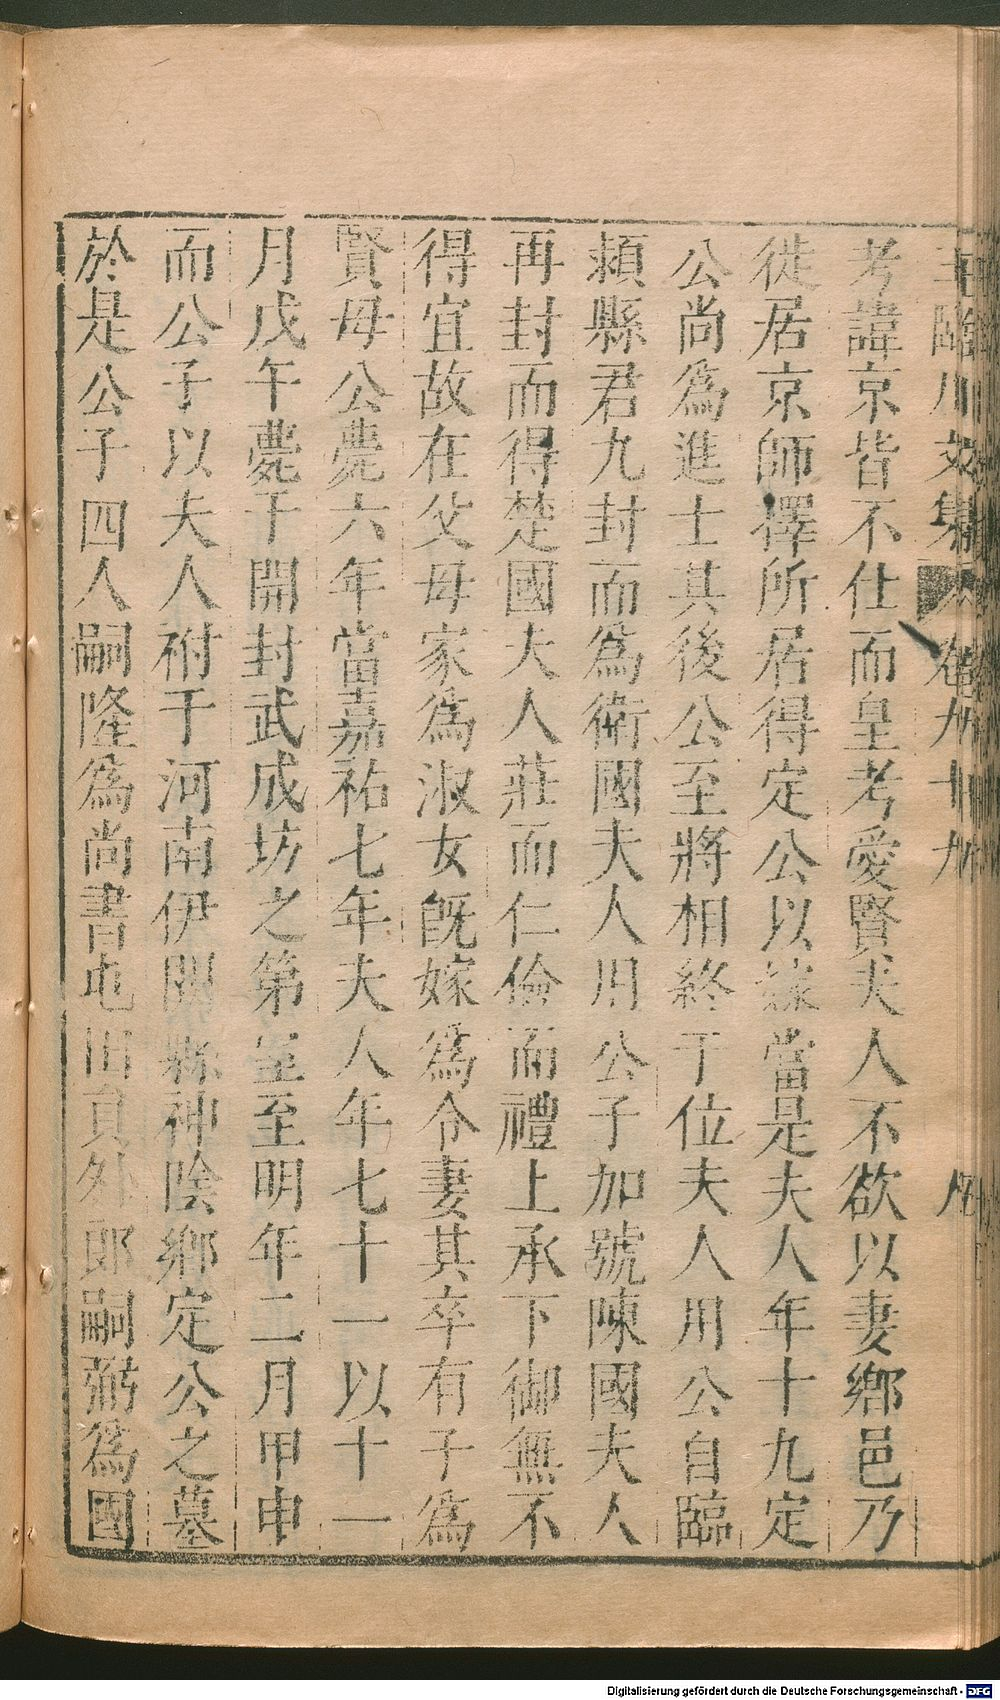 王臨川文集　卷九十九
考諱京皆不仕而皇考愛賢夫人不欲以妻鄉邑乃
徙居京師擇所居得定公以嫁當是夫人年十九定
公尚爲進士其後公至將相終于位夫人用公自臨
潁縣君九封而爲衛國夫人用公子加號陳國夫人
再封而得楚國夫人莊而仁儉而禮上承下御無不
得宜故在父母家爲淑女旣嫁爲令妻其卒有子爲
賢母公薨六年當嘉祐七年夫人年七十一以十一
月戊午薨于開封武成坊之第至至明年二月甲申
而公子以夫人祔于河南伊闕縣神陰鄉定公之墓
於是公子四人嗣隆爲尚書屯田員外郎嗣弼爲國
Digitalisierung gefördert durch die Deutsche Forschungsgemeinschaft - DFG